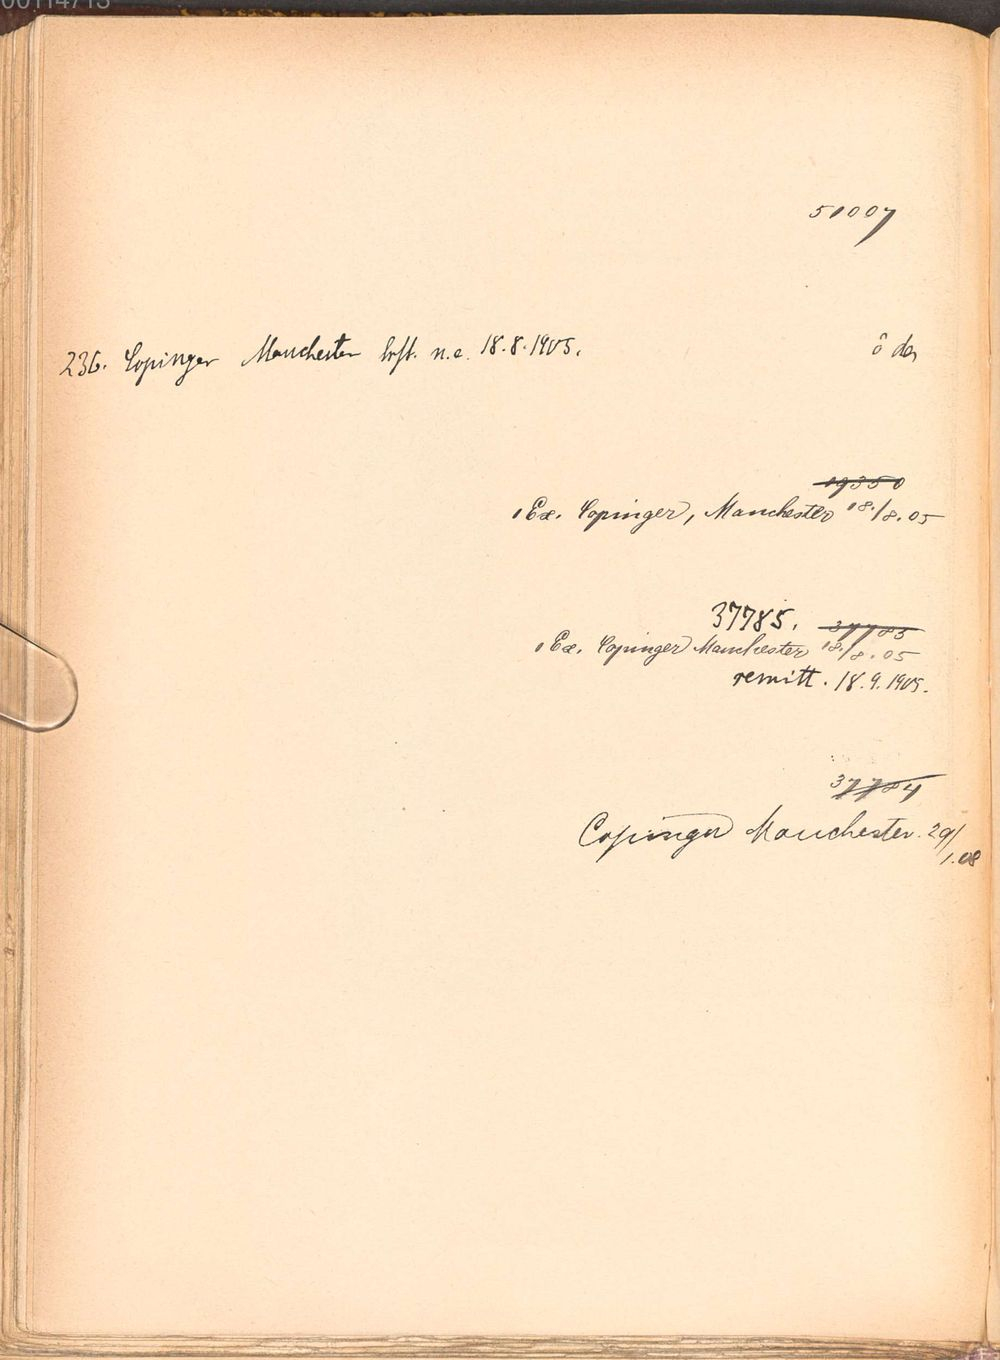 00114713
51007
236. Copinger Manchester hft. n.e. 18.8.1905.
ô da
19350
1 Ex. Copinger, Manchester 18./8.05
37785. 37785
1 Ex. Copinger Manchester 18./8.05
remitt. 18.9.1905.
37784
Copinger Manchester. 29/1.08